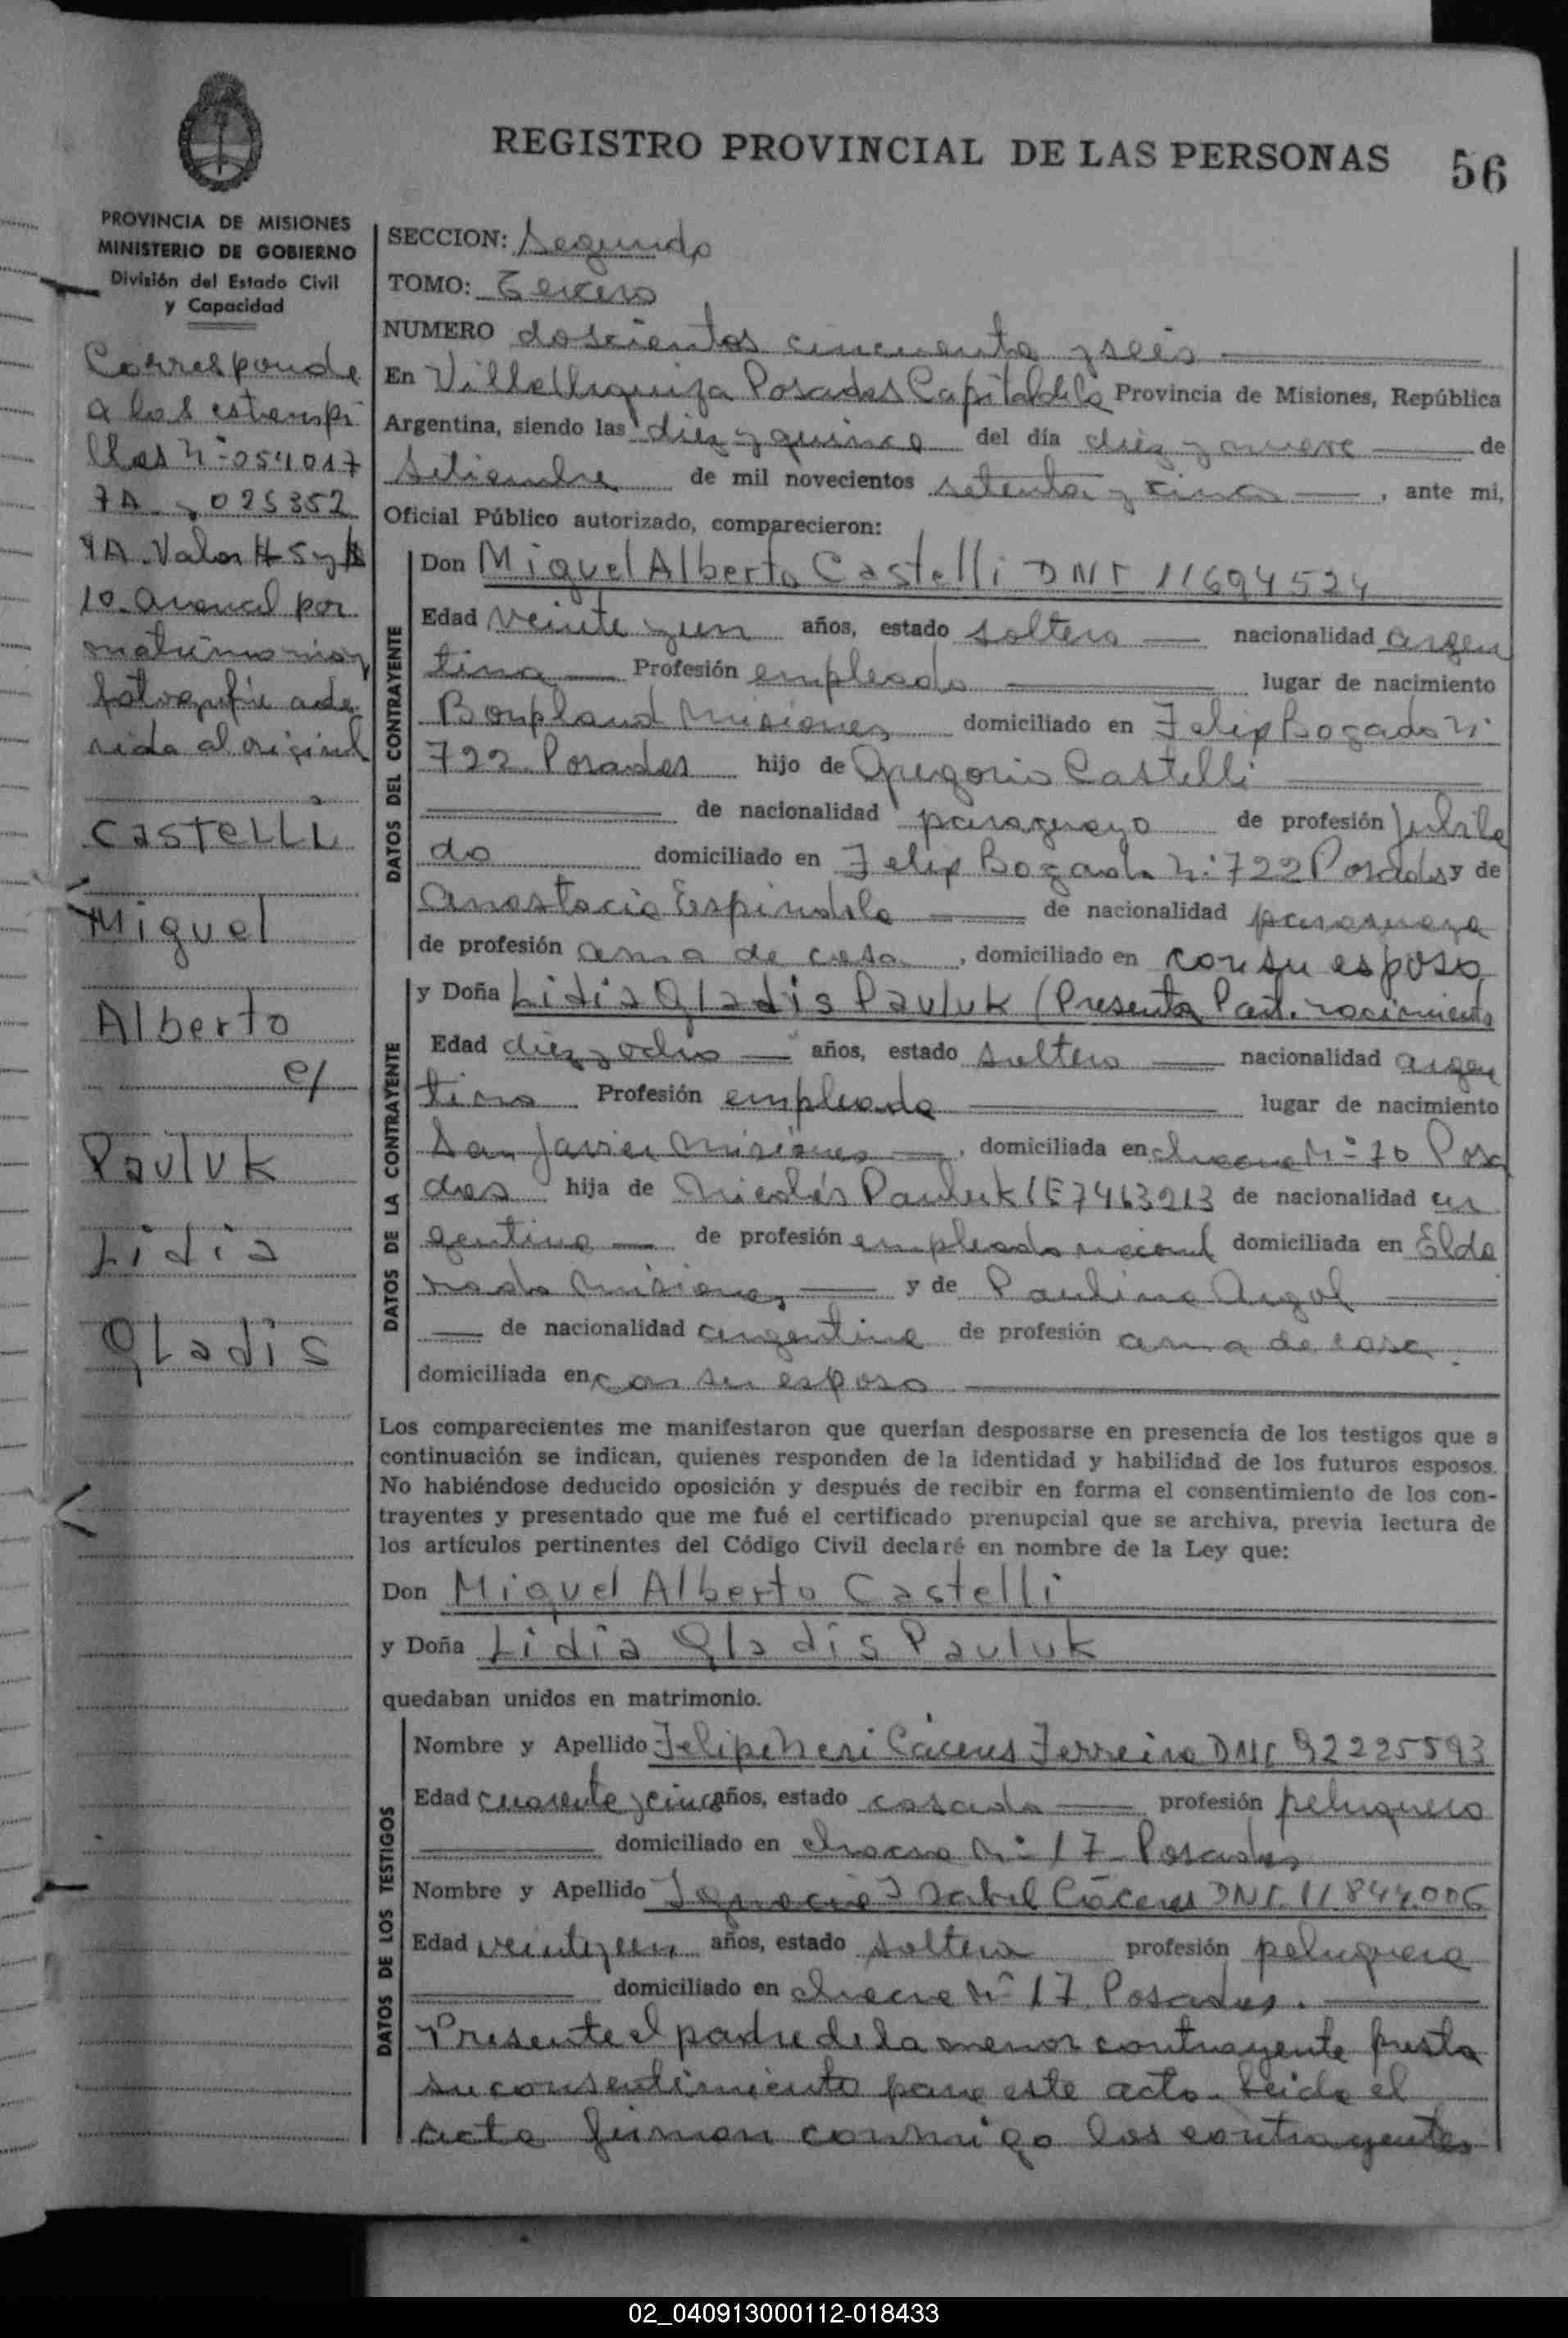 REGISTRO PROVINCIAL DE LAS PERSONAS 56
PROVINCIA DE MISIONES
MINISTERIO DE GOBIERNO
División del Estado Civil
y Capacidad
Corresponde
a las estampi
llas Nº 054017
7A y 025352
9A. Valor $ 5 y $
10. Arancel por
matrimonio y
fotografía adhe
rida al original
CASTELLI
Miguel
Alberto
c/
Pauluk
Lidia
Gladis
SECCION: Segundo
TOMO: Tercero
NUMERO doscientos cincuenta y seis
En Villa Urquiza Posadas Capital de la Provincia de Misiones, República
Argentina, siendo las diez y quince del día diez y nueve de
Setiembre de mil novecientos setenta y cinco, ante mi,
Oficial Público autorizado, comparecieron:
DATOS DEL CONTRAYENTE
Don Miguel Alberto Castelli DNI 11694524
Edad veinte y un años, estado soltero nacionalidad argen
tina Profesión empleado lugar de nacimiento
Bonpland Misiones domiciliado en Felix Bogado Nº
722 Posadas hijo de Gregorio Castelli
de nacionalidad paraguayo de profesión Jubila
do domiciliado en Felix Bogado Nº 722 Posadas y de
Anastacia Espindola de nacionalidad paraguaya
de profesión ama de casa, domiciliado en con su esposo
DATOS DE LA CONTRAYENTE
y Doña Lidia Gladis Pauluk (Presenta Part. nacimiento
Edad diez y ocho años, estado soltera nacionalidad argen
tina Profesión empleada lugar de nacimiento
San Javier Misiones, domiciliada en chacra Nº 70 Posa
das hija de Nicolás Pauluk LE 7463213 de nacionalidad ar
gentino de profesión empleado nacional domiciliada en Eldo
rado Misiones y de Paulina
de nacionalidad argentina de profesión ama de casa.
domiciliada en con su esposo
Los comparecientes me manifestaron que querían desposarse en presencia de los testigos que a
continuación se indican, quienes responden de la identidad y habilidad de los futuros esposos.
No habiéndose deducido oposición y después de recibir en forma el consentimiento de los con-
trayentes y presentado que me fué el certificado prenupcial que se archiva, previa lectura de
los artículos pertinentes del Código Civil declaré en nombre de la Ley que:
Don Miguel Alberto Castelli
y Doña Lidia Gladis Pauluk
quedaban unidos en matrimonio.
DATOS DE LOS TESTIGOS
Nombre y Apellido Felipe Neri Cáceres Ferreira DNI 92225593
Edad cuarenta y cinco años, estado casado profesión peluquero
domiciliado en chacra Nº 17 Posadas
Nombre y Apellido Ignacia Isabel Cáceres DNI. 11.844.006
Edad veinte y un años, estado soltera profesión peluquera
domiciliado en chacra Nº 17 Posadas.
Presente el padre de la menor contrayente presta
su consentimiento para este acto. Leida el
acta firman conmigo los contrayentes
02_040913000112-018433